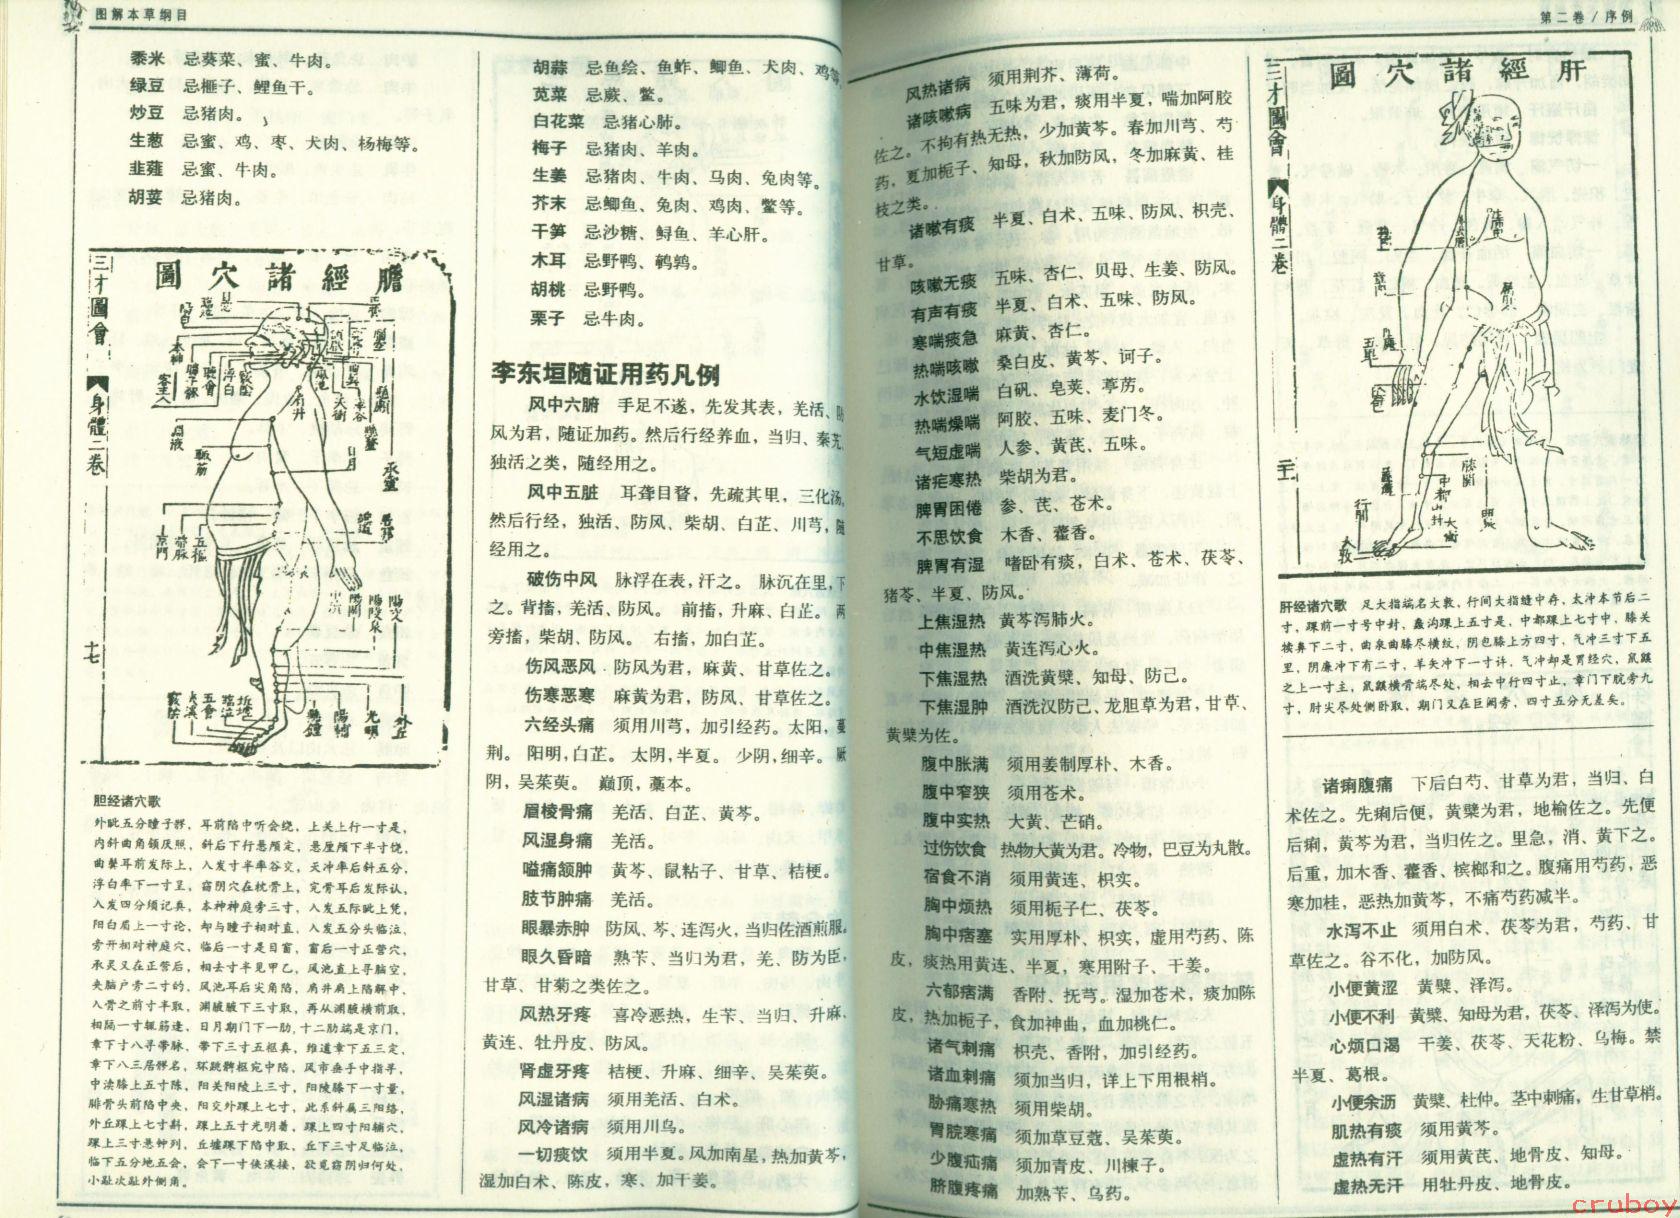 图解本草纲目
黍米 忌葵菜、蜜、牛肉。
绿豆 忌榧子、鲤鱼干。
炒豆 忌猪肉。
生葱 忌蜜、鸡、枣、犬肉、杨梅等。
韭薤 忌蜜、牛肉。
胡荽 忌猪肉。
膽經諸穴圖
三才圖會
身體二卷
十七
胆经诸穴歌
外眦五分瞳子髎，耳前陷中听会绕，上关上行一寸是，
内斜曲角颔厌照，斜后下行悬颅定，悬厘颅下半寸饶，
曲鬓耳前发际上，入发寸半率谷交，天冲率后斜五分，
浮白率下一寸呈，窍阴穴在枕骨上，完骨耳后发际认，
入发四分须记真，本神神庭旁三寸，入发五际眦上凭，
阳白眉上一寸论，却与瞳子相对直，入发五分头临泣，
旁开相对神庭穴，临后一寸是目窗，窗后一寸正营穴，
承灵又在正营后，相去寸半见甲乙，风池直上寻脑空，
夹脑户旁二寸的，风池耳后尖角陷，肩井肩上陷解中，
大骨之前寸半取，渊腋腋下三寸取，再从渊腋横前取，
相隔一寸辄筋逢，日月期门下一肋，十二肋端是京门，
章下寸八寻带脉，带下三寸五枢真，维道章下五三定，
章下八三居髎名，环跳髀枢宛中陷，风市垂手中指寻，
中渎膝上五寸陈，阳关阳陵上三寸，阳陵膝下一寸量，
腓骨头前陷中央，阳交外踝上七寸，此系斜属三阳络，
外丘踝上七寸斟，踝上五寸光明著，踝上四寸阳辅穴，
踝上三寸悬钟列，丘墟踝下陷中取，丘下三寸足临泣，
临下五分地五会，会下一寸侠溪接，欲觅窍阴归何处，
小趾次趾外侧角。
胡蒜 忌鱼绘、鱼鲊、鲫鱼、犬肉、鸡等
苋菜 忌蕨、鳖。
白花菜 忌猪心肺。
梅子 忌猪肉、羊肉。
生姜 忌猪肉、牛肉、马肉、兔肉等。
芥末 忌鲫鱼、兔肉、鸡肉、鳖等。
干笋 忌沙糖、鲟鱼、羊心肝。
木耳 忌野鸭、鹌鹑。
胡桃 忌野鸭。
栗子 忌牛肉。
李东垣随证用药凡例
风中六腑 手足不遂，先发其表，羌活、防
风为君，随证加药。然后行经养血，当归、秦艽、
独活之类，随经用之。
风中五脏 耳聋目瞀，先疏其里，三化汤，
然后行经，独活、防风、柴胡、白芷、川芎，随
经用之。
破伤中风 脉浮在表，汗之。脉沉在里，下
之。背搐，羌活、防风。前搐，升麻、白芷。两
旁搐，柴胡、防风。右搐，加白芷。
伤风恶风 防风为君，麻黄、甘草佐之。
伤寒恶寒 麻黄为君，防风、甘草佐之。
六经头痛 须用川芎，加引经药。太阳，蔓
荆。阳明，白芷。太阴，半夏。少阴，细辛。厥
阴，吴茱萸。巅顶，藁本。
眉棱骨痛 羌活、白芷、黄芩。
风湿身痛 羌活。
嗌痛颔肿 黄芩、鼠粘子、甘草、桔梗。
肢节肿痛 羌活。
眼暴赤肿 防风、芩、连泻火，当归佐酒煎服。
眼久昏暗 熟苄、当归为君，羌、防为臣，
甘草、甘菊之类佐之。
风热牙疼 喜冷恶热，生苄、当归、升麻、
黄连、牡丹皮、防风。
肾虚牙疼 桔梗、升麻、细辛、吴茱萸。
风湿诸病 须用羌活、白术。
风冷诸病 须用川乌。
一切痰饮 须用半夏。风加南星，热加黄芩，
湿加白术、陈皮，寒、加干姜。
第二卷/序例
风热诸病 须用荆芥、薄荷。
诸咳嗽病 五味为君，痰用半夏，喘加阿胶
佐之。不拘有热无热，少加黄芩。春加川芎、芍
药，夏加栀子、知母，秋加防风，冬加麻黄、桂
枝之类。
诸嗽有痰 半夏、白术、五味、防风、枳壳、
甘草。
咳嗽无痰 五味、杏仁、贝母、生姜、防风。
有声有痰 半夏、白术、五味、防风。
寒喘痰急 麻黄、杏仁。
热喘咳嗽 桑白皮、黄芩、诃子。
水饮湿喘 白矾、皂荚、葶苈。
热喘燥喘 阿胶、五味、麦门冬。
气短虚喘 人参、黄芪、五味。
诸疟寒热 柴胡为君。
脾胃困倦 参、芪、苍术。
不思饮食 木香、藿香。
脾胃有湿 嗜卧有痰，白术、苍术、茯苓、
猪苓、半夏、防风。
上焦湿热 黄芩泻肺火。
中焦湿热 黄连泻心火。
下焦湿热 酒洗黄檗、知母、防己。
下焦湿肿 酒洗汉防己、龙胆草为君，甘草、
黄檗为佐。
腹中胀满 须用姜制厚朴、木香。
腹中窄狭 须用苍术。
腹中实热 大黄、芒硝。
过伤饮食 热物大黄为君。冷物，巴豆为丸散。
宿食不消 须用黄连、枳实。
胸中烦热 须用栀子仁、茯苓。
胸中痞塞 实用厚朴、枳实，虚用芍药、陈
皮，痰热用黄连、半夏，寒用附子、干姜。
六郁痞满 香附、抚芎。湿加苍术，痰加陈
皮，热加栀子，食加神曲，血加桃仁。
诸气刺痛 枳壳、香附，加引经药。
诸血刺痛 须加当归，详上下用根梢。
胁痛寒热 须用柴胡。
胃脘寒痛 须加草豆蔻、吴茱萸。
少腹疝痛 须加青皮、川楝子。
脐腹疼痛 加熟苄、乌药。
肝經諸穴圖
三才圖會
身體二卷
二十
肝经诸穴歌 足大指端名大敦，行间大指缝中存，太冲本节后二
寸，踝前一寸号中封，蠡沟踝上五寸是，中都踝上七寸中，膝关
犊鼻下二寸，曲泉曲膝尽横纹，阴包膝上方四寸，气冲三寸下五
里，阴廉冲下有二寸，羊矢冲下一寸许，气冲却是胃经穴，鼠鼷
之上一寸主，鼠鼷横骨端尽处，相去中行四寸止，章门下脘旁九
寸，肘尖尽处侧卧取，期门又在巨阙旁，四寸五分无差矣。
诸痢腹痛 下后白芍、甘草为君，当归、白
术佐之。先痢后便，黄檗为君，地榆佐之。先便
后痢，黄芩为君，当归佐之。里急，消、黄下之。
后重，加木香、藿香、槟榔和之。腹痛用芍药，恶
寒加桂，恶热加黄芩，不痛芍药减半。
水泻不止 须用白术、茯苓为君，芍药、甘
草佐之。谷不化，加防风。
小便黄涩 黄檗、泽泻。
小便不利 黄檗、知母为君，茯苓、泽泻为使。
心烦口渴 干姜、茯苓、天花粉、乌梅。禁
半夏、葛根。
小便余沥 黄檗、杜仲。茎中刺痛，生甘草梢。
肌热有痰 须用黄芩。
虚热有汗 须用黄芪、地骨皮、知母。
虚热无汗 用牡丹皮、地骨皮。
cruboy